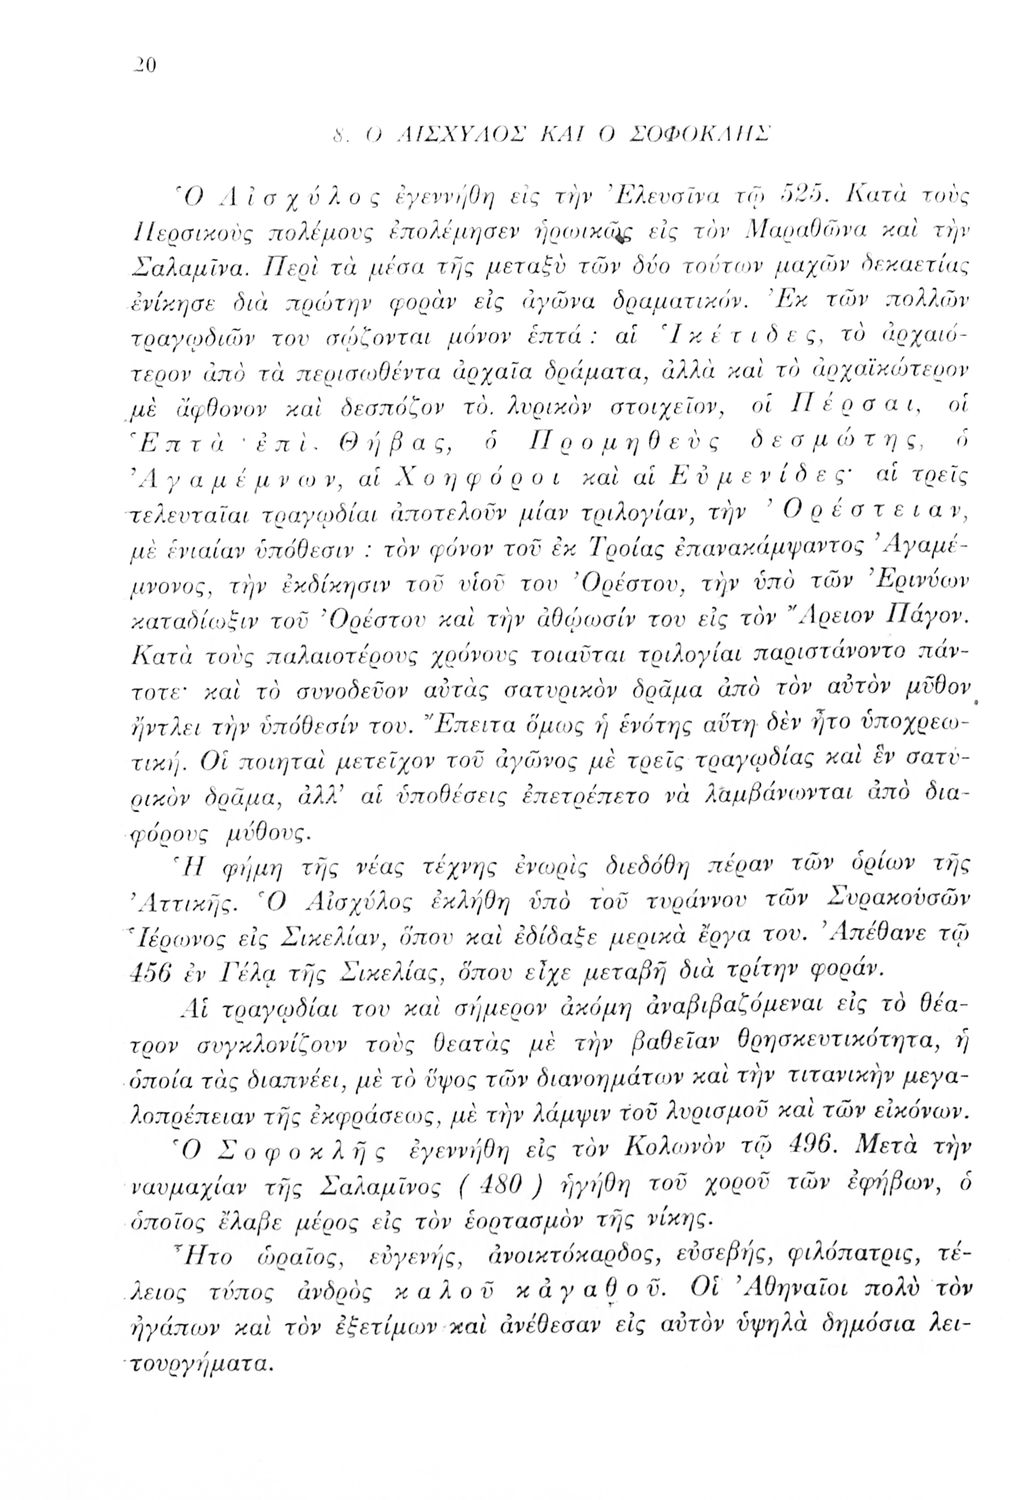 20
8. Ο ΑΙΣΧΥΛΟΣ ΚΑΙ Ο ΣΟΦΟΚΛΗΣ
Ὁ Αἰσχύλος ἐγεννήθη εἰς τὴν Ἐλευσῖνα τῷ 525. Κατὰ τοὺς
Περσικοὺς πολέμους ἐπολέμησεν ἡρωικῶς εἰς τὸν Μαραθῶνα καὶ τὴν
Σαλαμῖνα. Περὶ τὰ μέσα τῆς μεταξὺ τῶν δύο τούτων μαχῶν δεκαετίας
ἐνίκησε διὰ πρώτην φορὰν εἰς ἀγῶνα δραματικόν. Ἐκ τῶν πολλῶν
τραγῳδιῶν του σῴζονται μόνον ἑπτά : αἱ Ἱκέτιδες, τὸ ἀρχαιό-
τερον ἀπὸ τὰ περισωθέντα ἀρχαῖα δράματα, ἀλλὰ καὶ τὸ ἀρχαϊκώτερον
μὲ ἄφθονον καὶ δεσπόζον τὸ. λυρικὸν στοιχεῖον, οἱ Πέρσαι, οἱ
Ἑπτὰ ἐπὶ Θήβας, ὁ Προμηθεὺς δεσμώτης, ὁ
Ἀγαμέμνων, αἱ Χοηφόροι καὶ αἱ Εὐμενίδες· αἱ τρεῖς
τελευταῖαι τραγῳδίαι ἀποτελοῦν μίαν τριλογίαν, τὴν Ὀρέστειαν,
μὲ ἑνιαίαν ὑπόθεσιν : τὸν φόνον τοῦ ἐκ Τροίας ἐπανακάμψαντος Ἀγαμέ-
μνονος, τὴν ἐκδίκησιν τοῦ υἱοῦ του Ὀρέστου, τὴν ὑπὸ τῶν Ἐρινύων
καταδίωξιν τοῦ Ὀρέστου καὶ τὴν ἀθῴωσίν του εἰς τὸν Ἄρειον Πάγον.
Κατὰ τοὺς παλαιοτέρους χρόνους τοιαῦται τριλογίαι παριστάνοντο πάν-
τοτε· καὶ τὸ συνοδεῦον αὐτὰς σατυρικὸν δρᾶμα ἀπὸ τὸν αὐτὸν μῦθον
ἤντλει τὴν ὑπόθεσίν του. Ἔπειτα ὅμως ἡ ἑνότης αὕτη δὲν ἦτο ὑποχρεω-
τική. Οἱ ποιηταὶ μετεῖχον τοῦ ἀγῶνος μὲ τρεῖς τραγῳδίας καὶ ἓν σατυ-
ρικὸν δρᾶμα, ἀλλ’ αἱ ὑποθέσεις ἐπετρέπετο νὰ λαμβάνωνται ἀπὸ δια-
φόρους μύθους.
Ἡ φήμη τῆς νέας τέχνης ἐνωρὶς διεδόθη πέραν τῶν ὁρίων τῆς
Ἀττικῆς. Ὁ Αἰσχύλος ἐκλήθη ὑπὸ τοῦ τυράννου τῶν Συρακουσῶν
Ἱέρωνος εἰς Σικελίαν, ὅπου καὶ ἐδίδαξε μερικὰ ἔργα του. Ἀπέθανε τῷ
456 ἐν Γέλᾳ τῆς Σικελίας, ὅπου εἶχε μεταβῆ διὰ τρίτην φοράν.
Αἱ τραγῳδίαι του καὶ σήμερον ἀκόμη ἀναβιβαζόμεναι εἰς τὸ θέα-
τρον συγκλονίζουν τοὺς θεατὰς μὲ τὴν βαθεῖαν θρησκευτικότητα, ἡ
ὁποία τὰς διαπνέει, μὲ τὸ ὕψος τῶν διανοημάτων καὶ τὴν τιτανικὴν μεγα-
λοπρέπειαν τῆς ἐκφράσεως, μὲ τὴν λάμψιν τοῦ λυρισμοῦ καὶ τῶν εἰκόνων.
Ὁ Σοφοκλῆς ἐγεννήθη εἰς τὸν Κολωνὸν τῷ 496. Μετὰ τὴν
ναυμαχίαν τῆς Σαλαμῖνος ( 480 ) ἡγήθη τοῦ χοροῦ τῶν ἐφήβων, ὁ
ὁποῖος ἔλαβε μέρος εἰς τὸν ἑορτασμὸν τῆς νίκης.
Ἦτο ὡραῖος, εὐγενής, ἀνοικτόκαρδος, εὐσεβής, φιλόπατρις, τέ-
λειος τύπος ἀνδρὸς καλοῦ κἀγαθοῦ. Οἱ Ἀθηναῖοι πολὺ τὸν
ἠγάπων καὶ τὸν ἐξετίμων καὶ ἀνέθεσαν εἰς αὐτὸν ὑψηλὰ δημόσια λει-
τουργήματα.